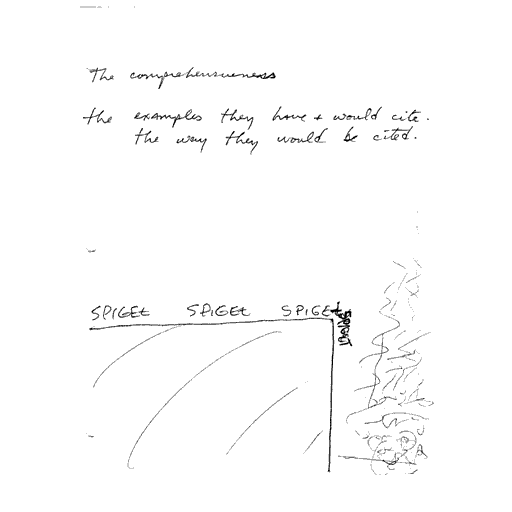 The comprehensiveness
the examples they have + would cite.
the way they would be cited.
SPIGEt SPIGEt SPIGEt
SPIGEt